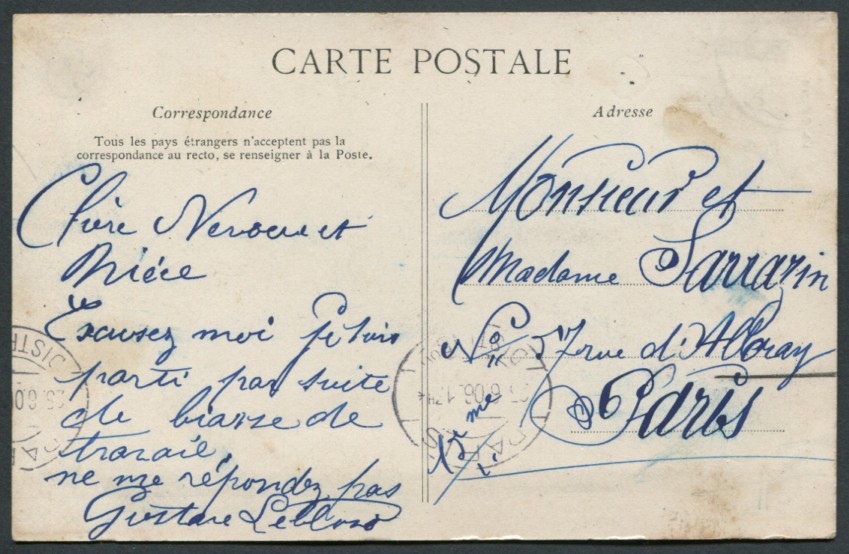 CARTE POSTALE
Correspondance
Tous les pays étrangers n'acceptent pas la
correspondance au recto, se renseigner à la Poste.
Chère Neveu et
Nièce
Excusez moi
parti par suite
de de
travail
ne me répondez pas
Gustave
Adresse
Monsieur et
Madame Sarrazin
No 57 rue d'
Paris
PARIS
DISTR